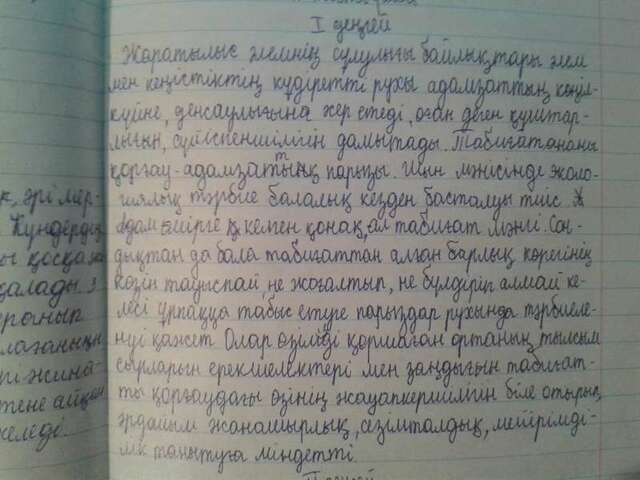 I деңгей
Жаратылыс әлемнің сұлулығы байлықтары әлем
мен кеңістіктің құдіретті рухы адамзаттың көңіл-
күйіне, денсаулығына әсер етеді, оған деген құштар-
лығын, сүйіспеншілігін дамытады. Табиғатананы
қорғау-адамзаттың парызы. Шын мәнісінде эколо-
гиялық тәрбие балалық кезден басталуы тиіс
Адам өмірге келген қонақ, ал табиғат мәңгі. Сон-
дықтан да бала табиғаттан алған барлық көрегінің
көзін тауыспай, не жоғалтып, не бүлдіріп алмай ке-
лесі ұрпаққа табыс етуге парыздар рухында тәрбиеле-
нуі қажет. Олар өзімізді қоршаған ортаның тылсым
сырларын ерекшеліктері мен заңдығын табиғат-
ты қорғаудағы өзінің жауапкершілігін біле отырып,
әрдайым жанашырлық, сезімталдық, мейірімді-
лік танытуға міндетті.
к, әрі мер-
Күндердің
ы қосқа
қалады. З
оранып
лағаның
п жина-
тене айқан
келеді.